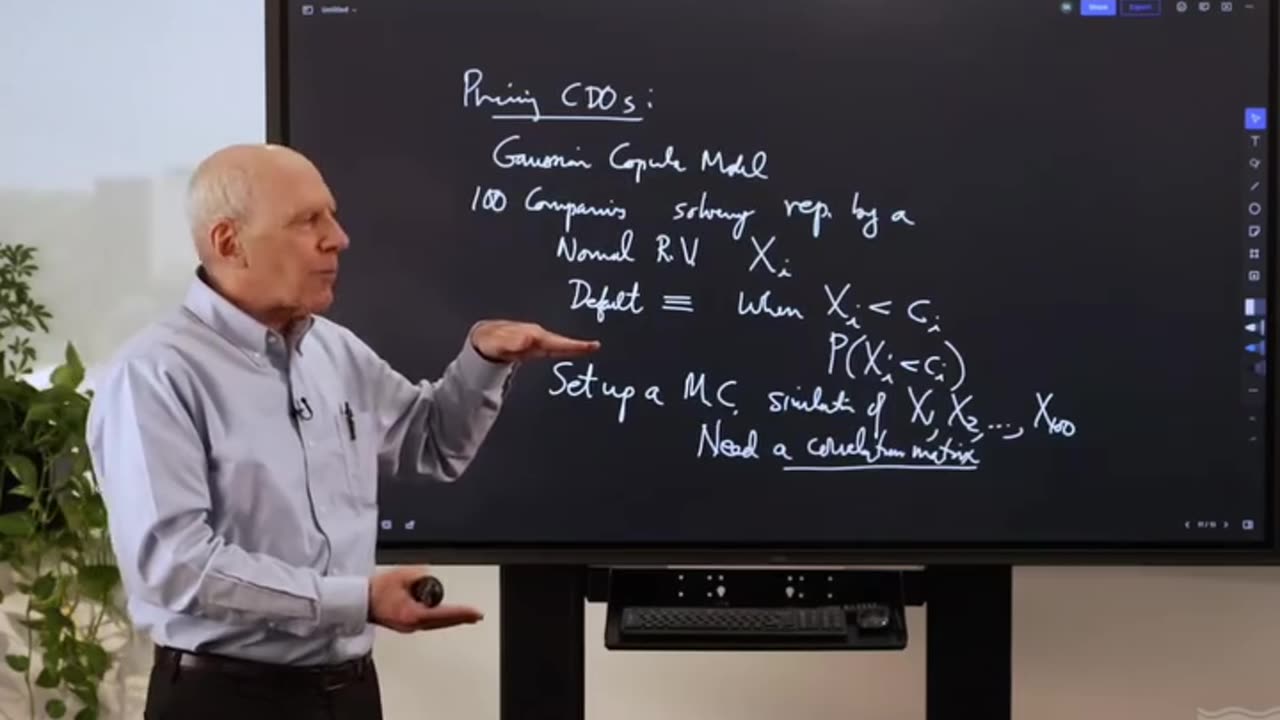 Untitled
Share
Export
Pricing CDOs:
Gaussian Copula Model
100 Companies solvency rep. by a
Normal R.V. Xi
Default ≡ when Xi < ci
P(Xi < ci)
Set up a MC. simulation of X1, X2, ..., X100
Need a correlation matrix